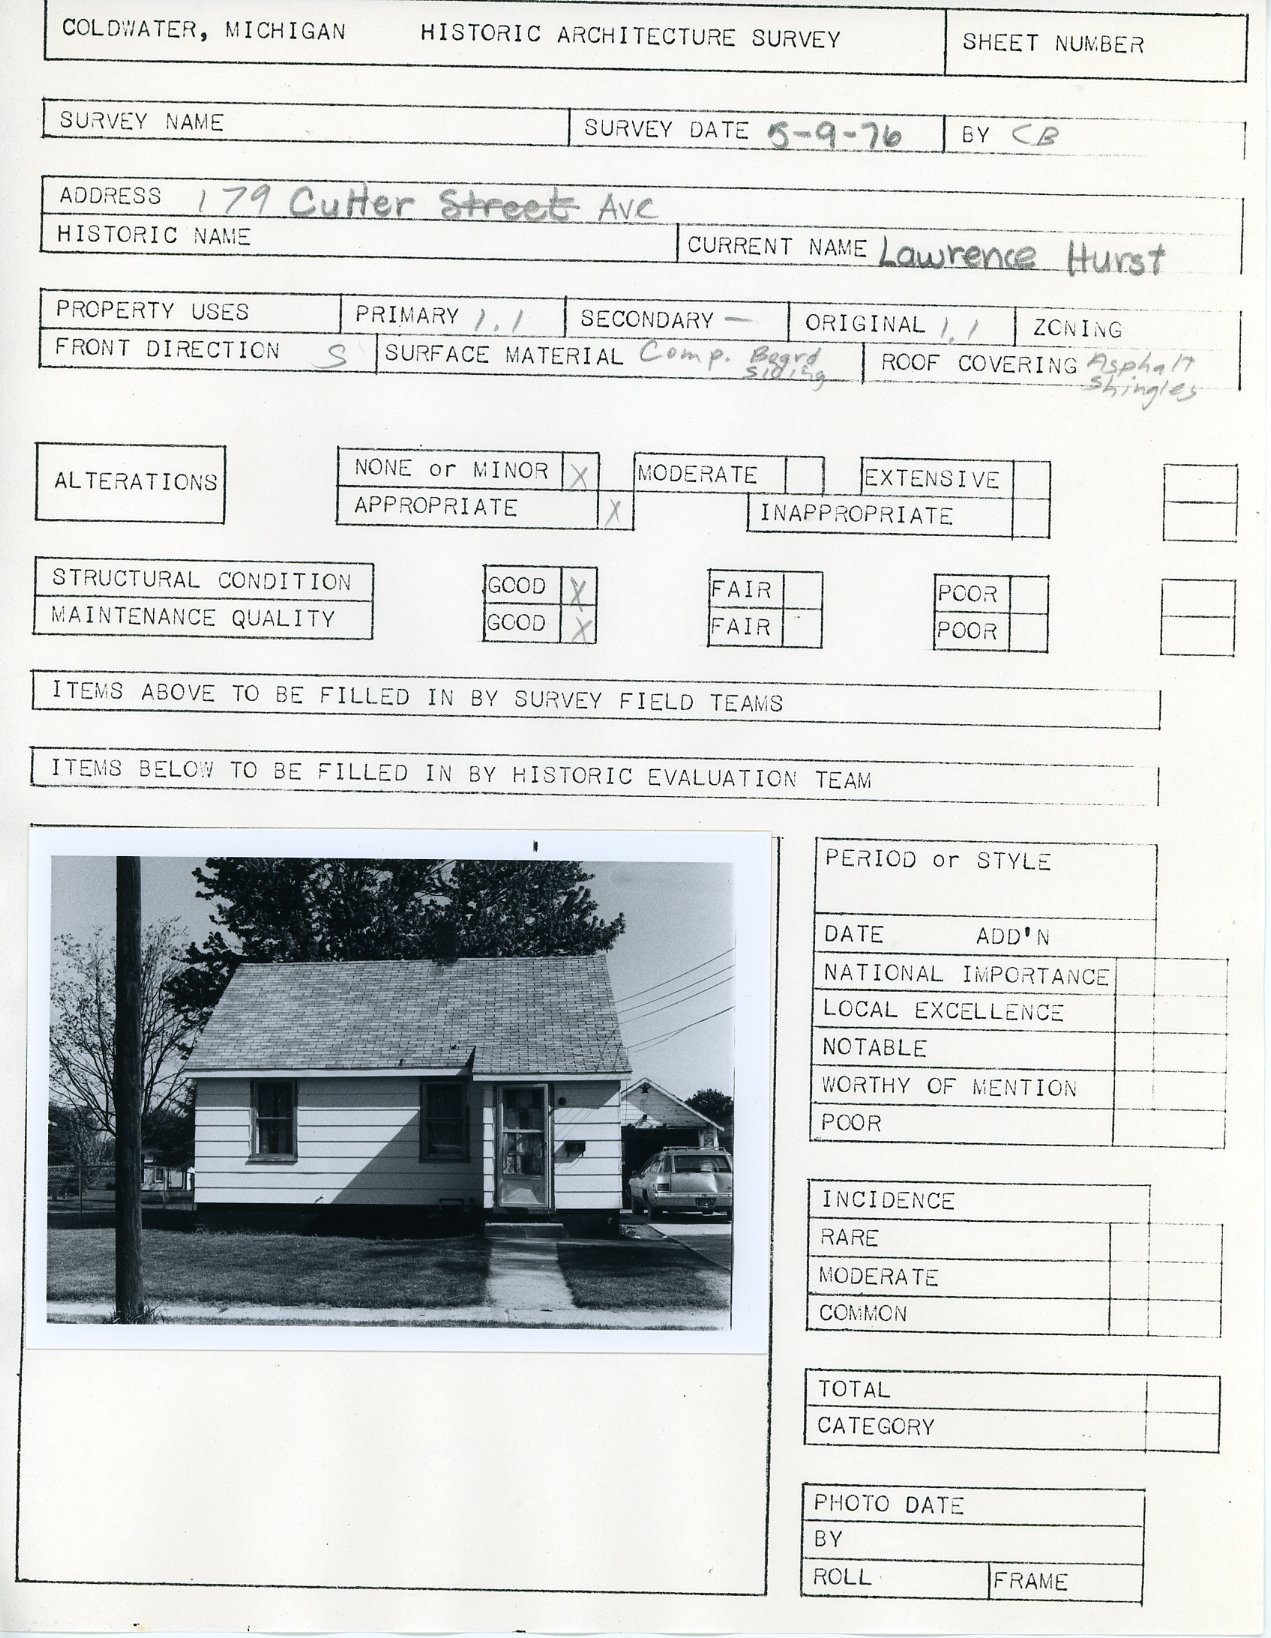 COLDWATER, MICHIGAN HISTORIC ARCHITECTURE SURVEY SHEET NUMBER
SURVEY NAME SURVEY DATE 5-9-76 BY CB
ADDRESS 179 Cutter Street Ave
HISTORIC NAME CURRENT NAME Lawrence Hurst
PROPERTY USES PRIMARY 1.1 SECONDARY — ORIGINAL 1.1 ZONING
FRONT DIRECTION S SURFACE MATERIAL Comp. Board Siding ROOF COVERING Asphalt Shingles
ALTERATIONS NONE or MINOR X MODERATE EXTENSIVE
APPROPRIATE X INAPPROPRIATE
STRUCTURAL CONDITION GOOD X FAIR POOR
MAINTENANCE QUALITY GOOD X FAIR POOR
ITEMS ABOVE TO BE FILLED IN BY SURVEY FIELD TEAMS
ITEMS BELOW TO BE FILLED IN BY HISTORIC EVALUATION TEAM
PERIOD or STYLE
DATE ADD'N
NATIONAL IMPORTANCE
LOCAL EXCELLENCE
NOTABLE
WORTHY OF MENTION
POOR
INCIDENCE
RARE
MODERATE
COMMON
TOTAL
CATEGORY
PHOTO DATE
BY
ROLL FRAME